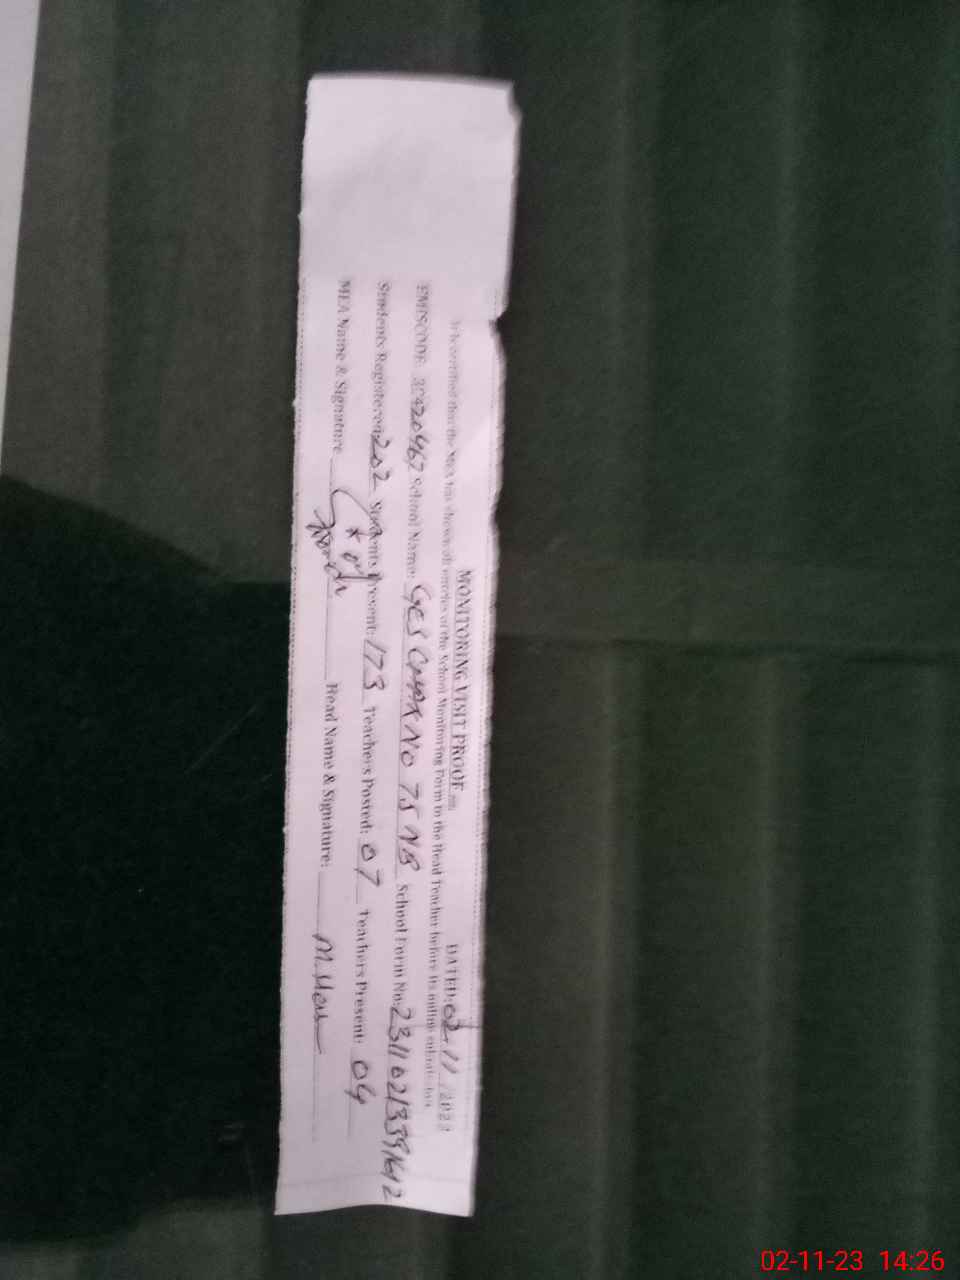 MONITORING VISIT PROOF DATED: 02.11/2023
It is certified that the MEA has shown all entries of the School Monitoring Form to the Head Teacher before its online submission
EMISCODE 38420467 School Name: GES CHAK NO 75 NB School Form No: 231102133591612
Students Registered: 202 Students Present: 173 Teachers Posted: 07 Teachers Present: 04
MEA Name & Signature Head Name & Signature:
02-11-23 14:26